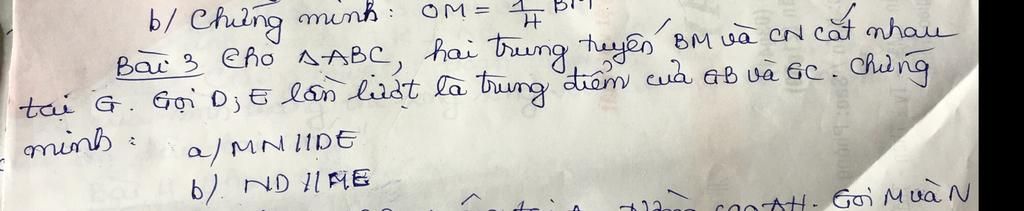 b/ Chứng minh: OM = 1/4 BM
Bài 3 Cho ΔABC, hai trung tuyến BM và CN cắt nhau
tại G. Gọi D, E lần lượt là trung điểm của GB và GC. Chứng
minh:
a/ MN // DE
b/ ND // ME
AH. Gọi M và N